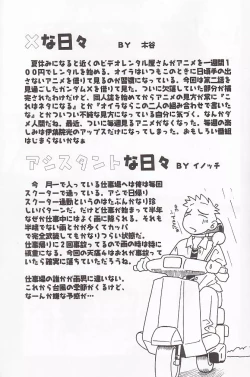 ×な日々
BY 木谷
夏休みになると近くのビデオレンタル屋さんがアニメを一週間1
00円でレンタルを始める。オイラはいつもこのときに日頃手の出
さないアニメを借りて見るのが習慣になっている。今回は第二話を
見過ごしたガンダムXを借りて見ていた。ついに欠落していた部分が補
完されたわけだけど、同人誌を始めてからアニメの見方が常に『こ
れはネタになる』とか『オイラならこの二人の組み合わせで書いたな』
とかついつい不純な見方になっている自分に気づく。なんかダ
メ人間だね。最近、ついに毎週見るアニメがなくなった。毎週の楽
しみは伊集院光のアップスだけになってしまった。おもしろい番組
はじまらないかなぁ
アシスタントな日々
BY イノッチ
今、月一で入っている仕事場へは俺は毎回
スクーターで通っている。アシで日帰り
スクーター通勤というのはたぶんかなり
珍しいパターンだ。だけど仕事が始まって半年
なぜか仕事中にはよく雨に見られる。それも
半端でない雨とかが多くてカッパ
で完全武装してもかなりつらい状態だ。
仕事帰りに2回事故ってるので雨の時は特に
慎重になる。今回の天候もはおれが事故って
いたら確実に落ちていただろうね。
仕事場の誰かが雨男に違いない。
これから台風の季節がくるけど、
なーんか嫌な予感が…